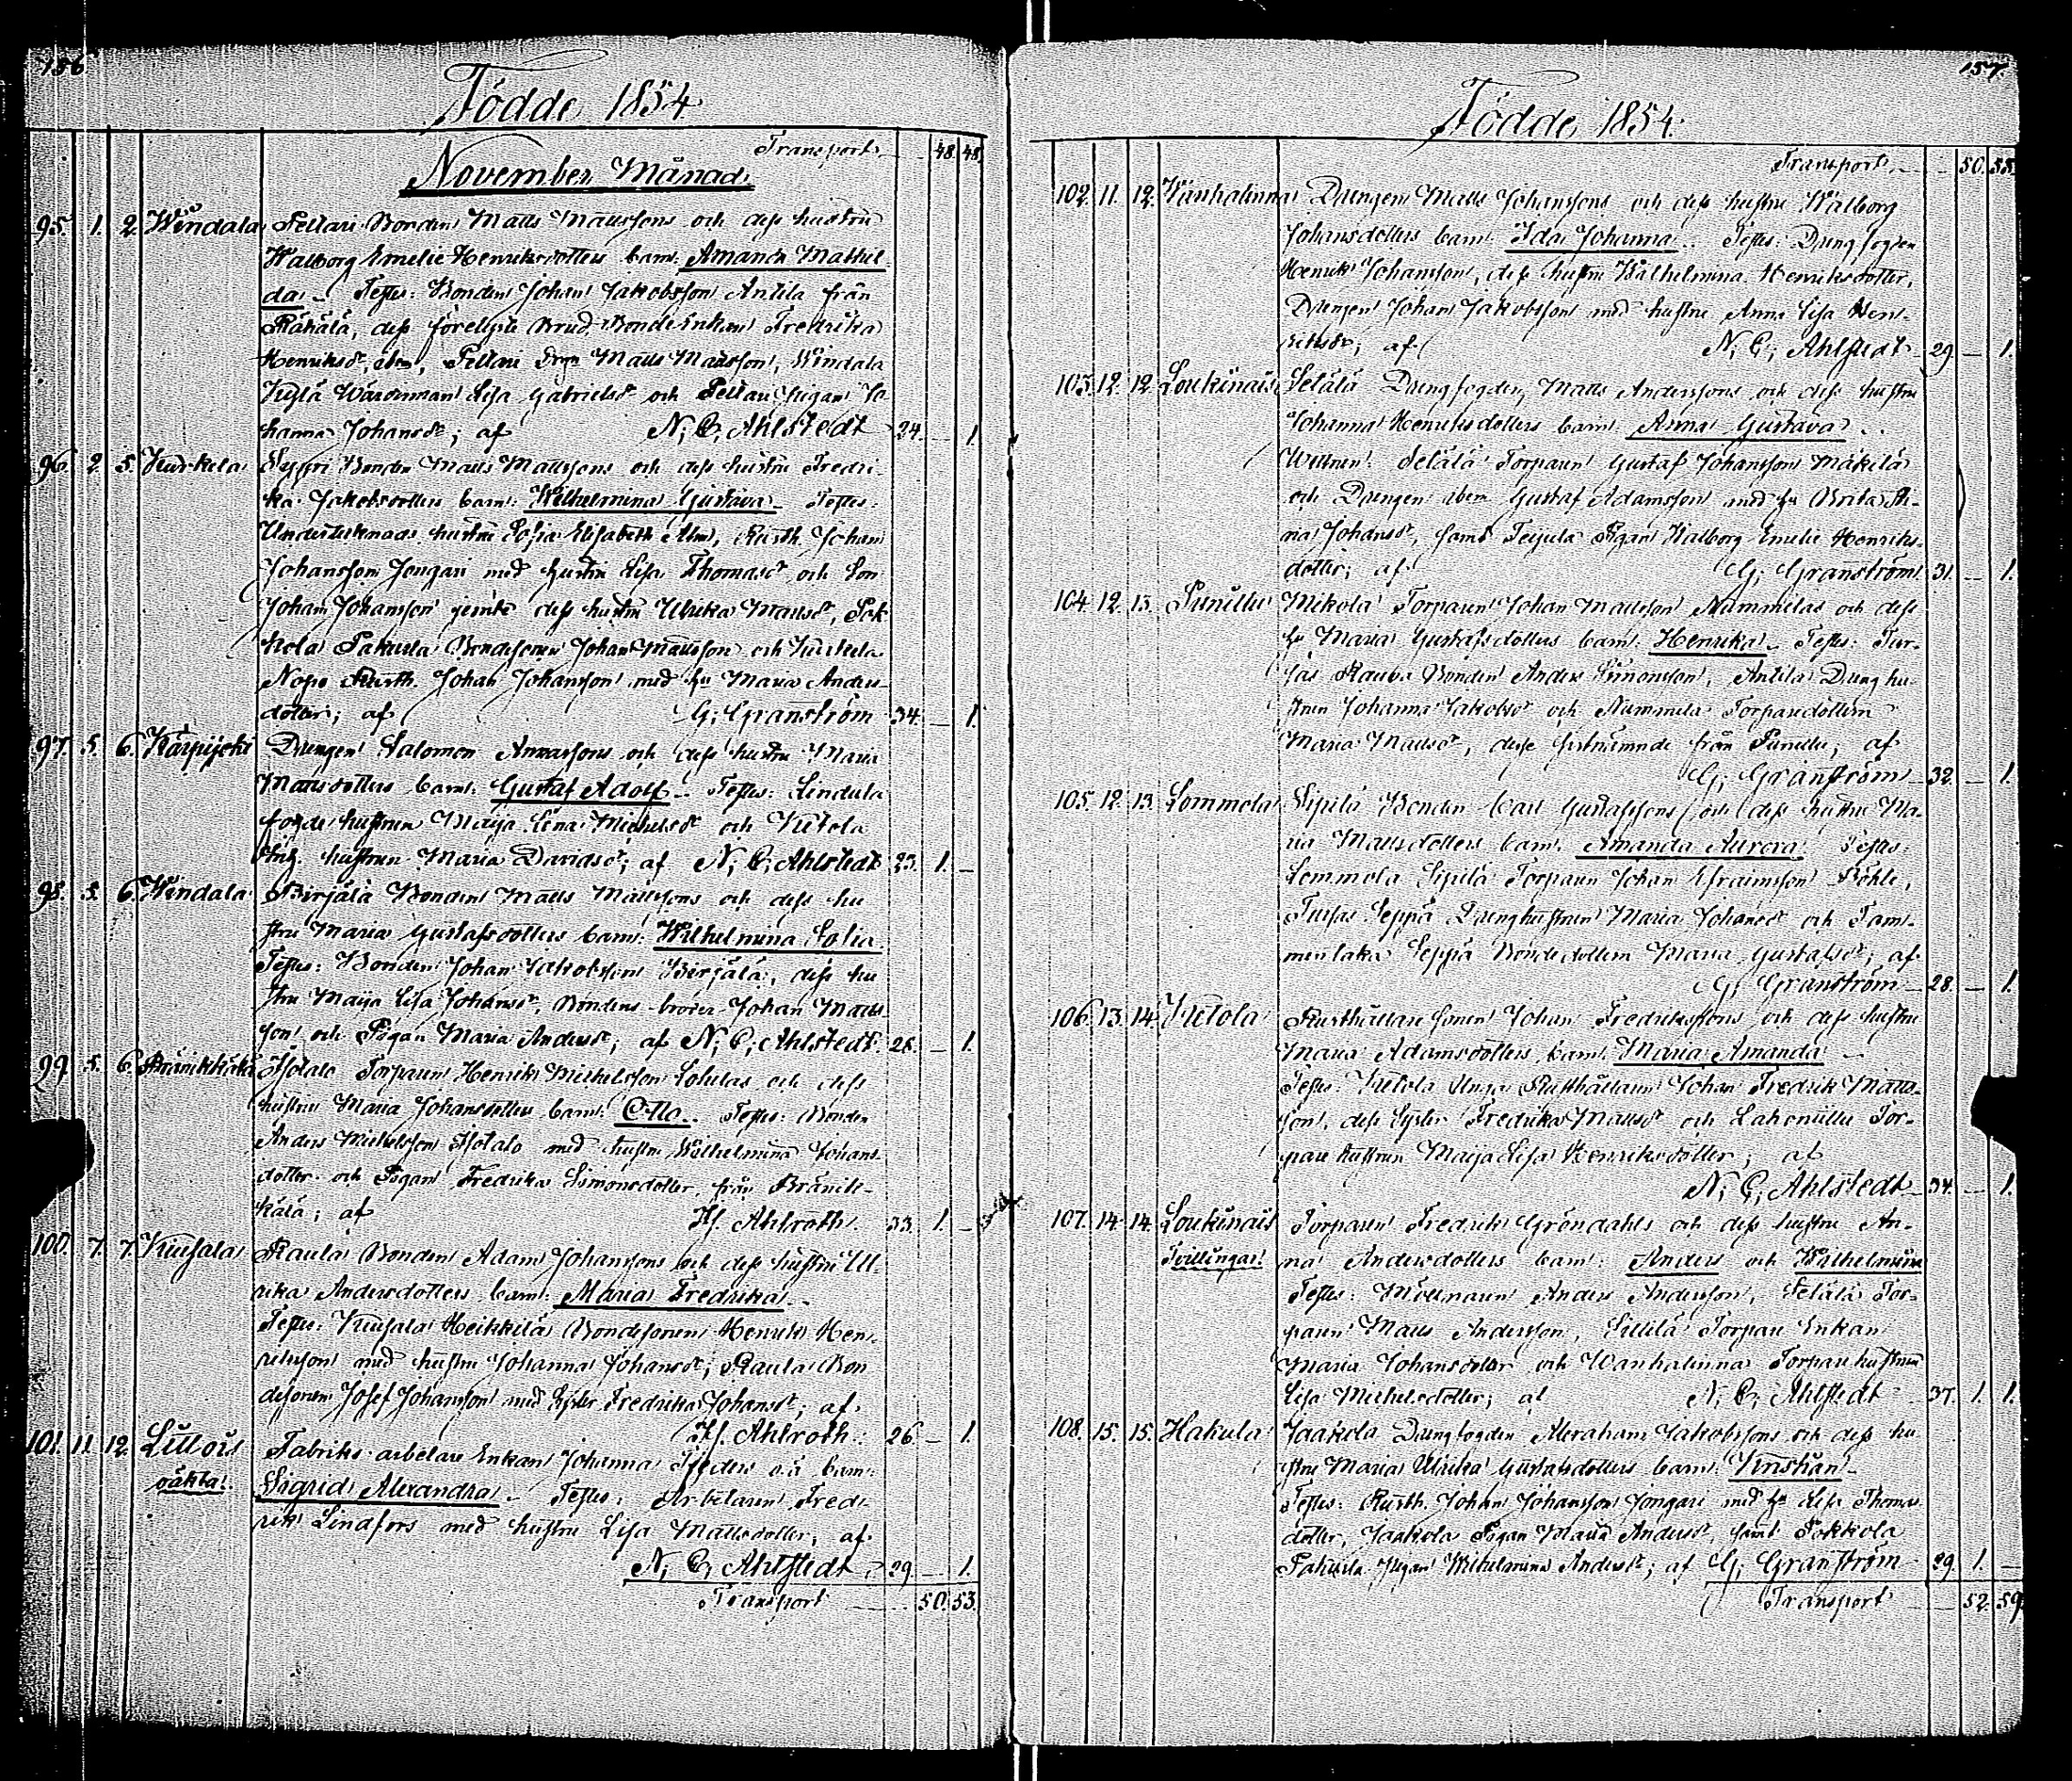 156.
Födde 1854.
Transport 48. 48.
November Månad.
95. 1. 2. Windala Pellari Bonden Matts Mattssons och dess hustru
Walborg Emelie Henriksdotters barn: Amanda Mathil
da. Testes: Bonden Johan Jakobsson Antila från
Räkälä, dess förelyste Brud Bonde Enkan Fredrika
Henriksdr, Pellari Matts Mattsson, Windala
Kylä Lisa Gabrielsdr och Pellari Pigan Jo
hanna Johansdr; af N. C. Ahlstedt 24. — 1.
96. 2. 5. Kurkela Bonden Matts Mattssons och dess hustru Fredri-
ka Jakobsdotters barn: Wilhelmina Gustava. Testes:
Undertecknads hustru Sofia Elisabeth, Rusth. Johan
Johansson Jongari med hustru Lisa Thomasdr och Son
Johan Johansson jemte dess hustru Ulrika Mattsdr, Pok
kola Pakurla Bondesonen Johan Mattsson och Kurkela
Nopo Rusth. Johan Johansson med hu Maria Anders-
dotter; af G. Granström 34. — 1.
97. 5. 6. Kärpijoki Drengen Salomon och dess hustru Maria
Mattsdotters barn: Gustaf Adolf. Testes: Lindula
fogde hustrun Maija Lena Michelsdr och Kietola
hustrun Maria Davidsdr; af N. C. Ahlstedt 23. 1. —
98. 5. 6. Windala Birjälä Bonden Matts Mattssons och dess hu
stru Maria Gustafsdotters barn: Wilhelmina Sofia.
Testes: Bonden Johan Jakobsson Birjälä, dess hu
stru Maija Lisa Johansdr, Bondens broder Johan Matts
son och Pigan Maria Andersdr; af N. C. Ahlstedt. 26. — 1.
99. 5. 6. Isotalo Torparen Henrik Michelsson och dess
hustru Maria Johansdotters barn: Otto. Testes: Bonden
Anders Michelsson Isotalo med hustru Wilhelmina Johans-
dotter och Pigan Fredrika Simonsdotter från Bränik-
kälä; af Hj. Ahlroth. 33. 1. —
100. 7. 7. Kiusala Raula Bonden Adam Johanssons och dess hustru Ul
rika Andersdotters barn: Maria Fredrika.
Testes: Kiusala Heikkilä Bondesonen Henrik Hen-
riksson med hustru Johanna Johansdr; Raula Bon
desonen Josef Johansson med Syster Fredrika Johansdr; af
Hj. Ahlroth. 26. — 1.
101. 11. 12. Littois Fabriks-arbetare Enkan Johanna o.ä. barn:
oäkta. Sigrid Alexandra. Testes: Arbetaren Fred-
rik Lindfors med hustru Lisa Mattsdotter; af
N. C. Ahlstedt 29. — 1.
Transport 50. 53.
157.
Födde 1854.
Transport 50. 53.
102. 11. 12. Wanhalinna Drengen Matts Johanssons och dess hustru Walborg
Johansdotters barn: Ida Johanna. Testes: Drengfogden
Henrik Johansson, dess hustru Wilhelmina Henriksdotter,
Drengen Johan Jakobsson med hustru Anna Lisa Hen-
riksdr; af N. C. Ahlstedt 29. — 1.
103. 12. 12. Loukinais Setälä Drengfogden Matts Anderssons och dess hustru
Johanna Henriksdotters barn: Anna Gustava.
Wittnen: Setälä Torparen Gustaf Johansson Mäkilä
och Drengen ibm Gustaf Adamsson med hu Brita Sti-
na Johansdr, samt Teijula Pigan Walborg Emelie Henriks-
dotter; af G. Granström 31. — 1.
104. 12. 13. Punittu Mikola Torparen Johan Mattsson Nummelas och dess
hu Maria Gustafsdotters barn: Henrika. Testes: Tur-
sas Rauva Bonden Anders Simonsson, Antila Dreng hu-
strun Johanna Jakobsdr och Nummela Torparedottern
Maria Mattsdr, desse sistnämnde från Punittu; af
G. Granström 32. — 1.
105. 12. 13. Lemmola Sipilä Bonden Carl Gustafssons och dess hustru Ma-
ria Mattsdotters barn: Amanda Aurora. Testes:
Lemmola Sipilä Torparen Johan Efraimsson Böhle,
Tursas Seppä Drenghustrun Maria Johansdr och Tam-
menlaka Seppä Bondedottern Maria Gustafsdr; af
G. Granström 28. — 1.
106. 13. 14. Kietola Rusthållare sonen Johan Fredrikssons och dess hustru
Maria Adamsdotters barn: Maria Amanda.
Testes: Kietola Unga Rusthållaren Johan Fredrik Matts-
son, dess Syster Fredrika Mattsdr och Lahoniittu Tor-
pare hustrun Maija Lisa Henriksdotter; af
N. C. Ahlstedt 34. — 1.
107. 14. 14. Loukinais Torparen Fredrik Gröndahls och dess hustru An-
Tvillingar. na Andersdotters barn: Anders och Wilhelmina
Testes: Möllnaren Anders Andersson, Setälä Tor-
paren Matts Andersson, Sillilä Torpare Enkan
Maria Johansdotter och Wanhalinna Torparehustrun
Lisa Michelsdotter; af N. C. Ahlstedt 37. 1. 1.
108. 15. 15. Hakula Jaakola Drengfogden Abraham Jakobssons och dess hu
stru Maria Ulrika Gustafsdotters barn: Kristian.
Testes: Rusth. Johan Johansson Jongari med hu Lisa Thomas
dotter, Jaakola Pigan Maria Andersdr, samt Pokkola
Pakurla Pigan Wilhelmina Andersdr; af G. Granström 29. 1. —
Transport 52. 59.